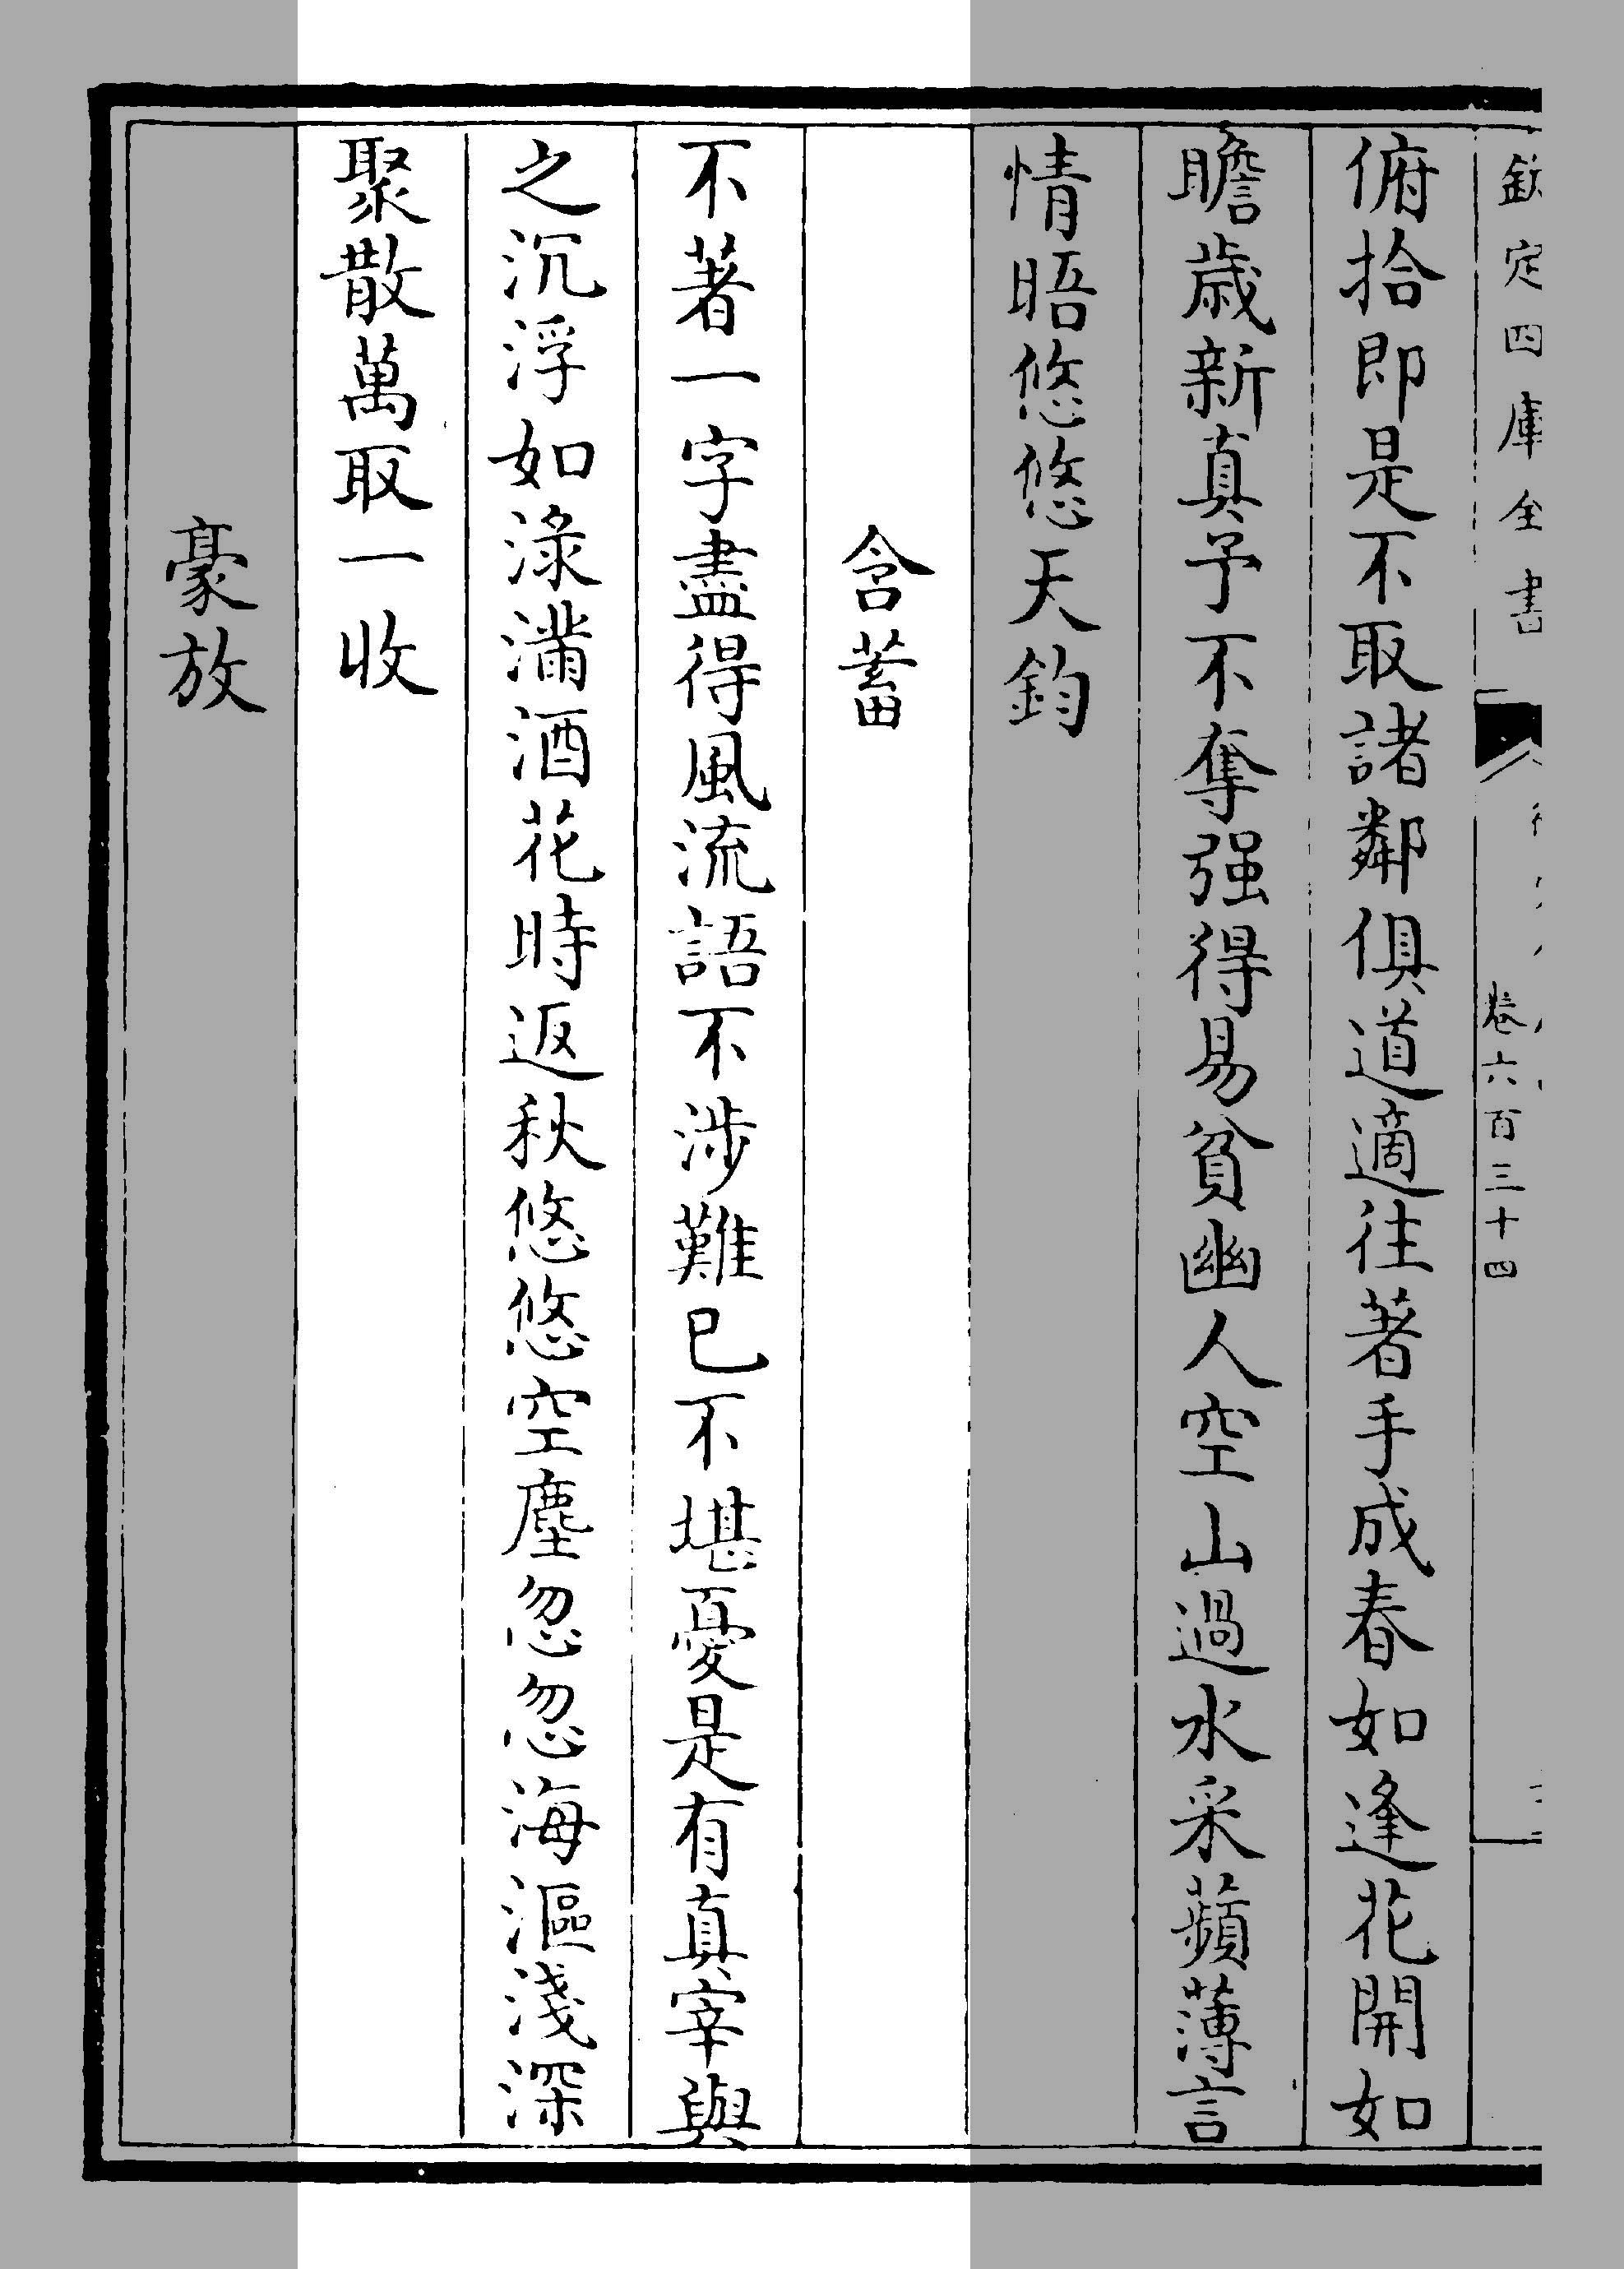 欽定四庫全書
卷六百三十四
俯拾即是不取諸鄰俱道適往著手成春如逢花開如
瞻歲新真予不奪强得易貧幽人空山過水采蘋薄言
情晤悠悠天鈞
含蓄
不著一字盡得風流語不涉難已不堪憂是有真宰與
之沉浮如淥滿酒花時返秋悠悠空塵忽忽海漚淺深
聚散萬取一收
豪放